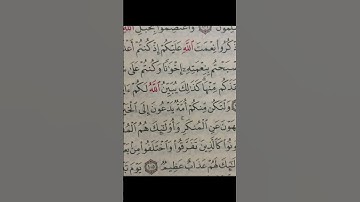 ـلمون ۝ واعتصموا بحبل
ذكروا نعمت الله عليكم إذ كنتم أعد
ـبحتم بنعمته إخوانا وكنتم على
ـقذكم منها كذلك يبين الله لكم
ولتكن منكم أمة يدعون إلى الخـ
ـهون عن المنكر وأولئك هم المـ
ـونوا كالذين تفرقوا واختلفوا من بعـ
ـلئك لهم عذاب عظيم ۝ يوم